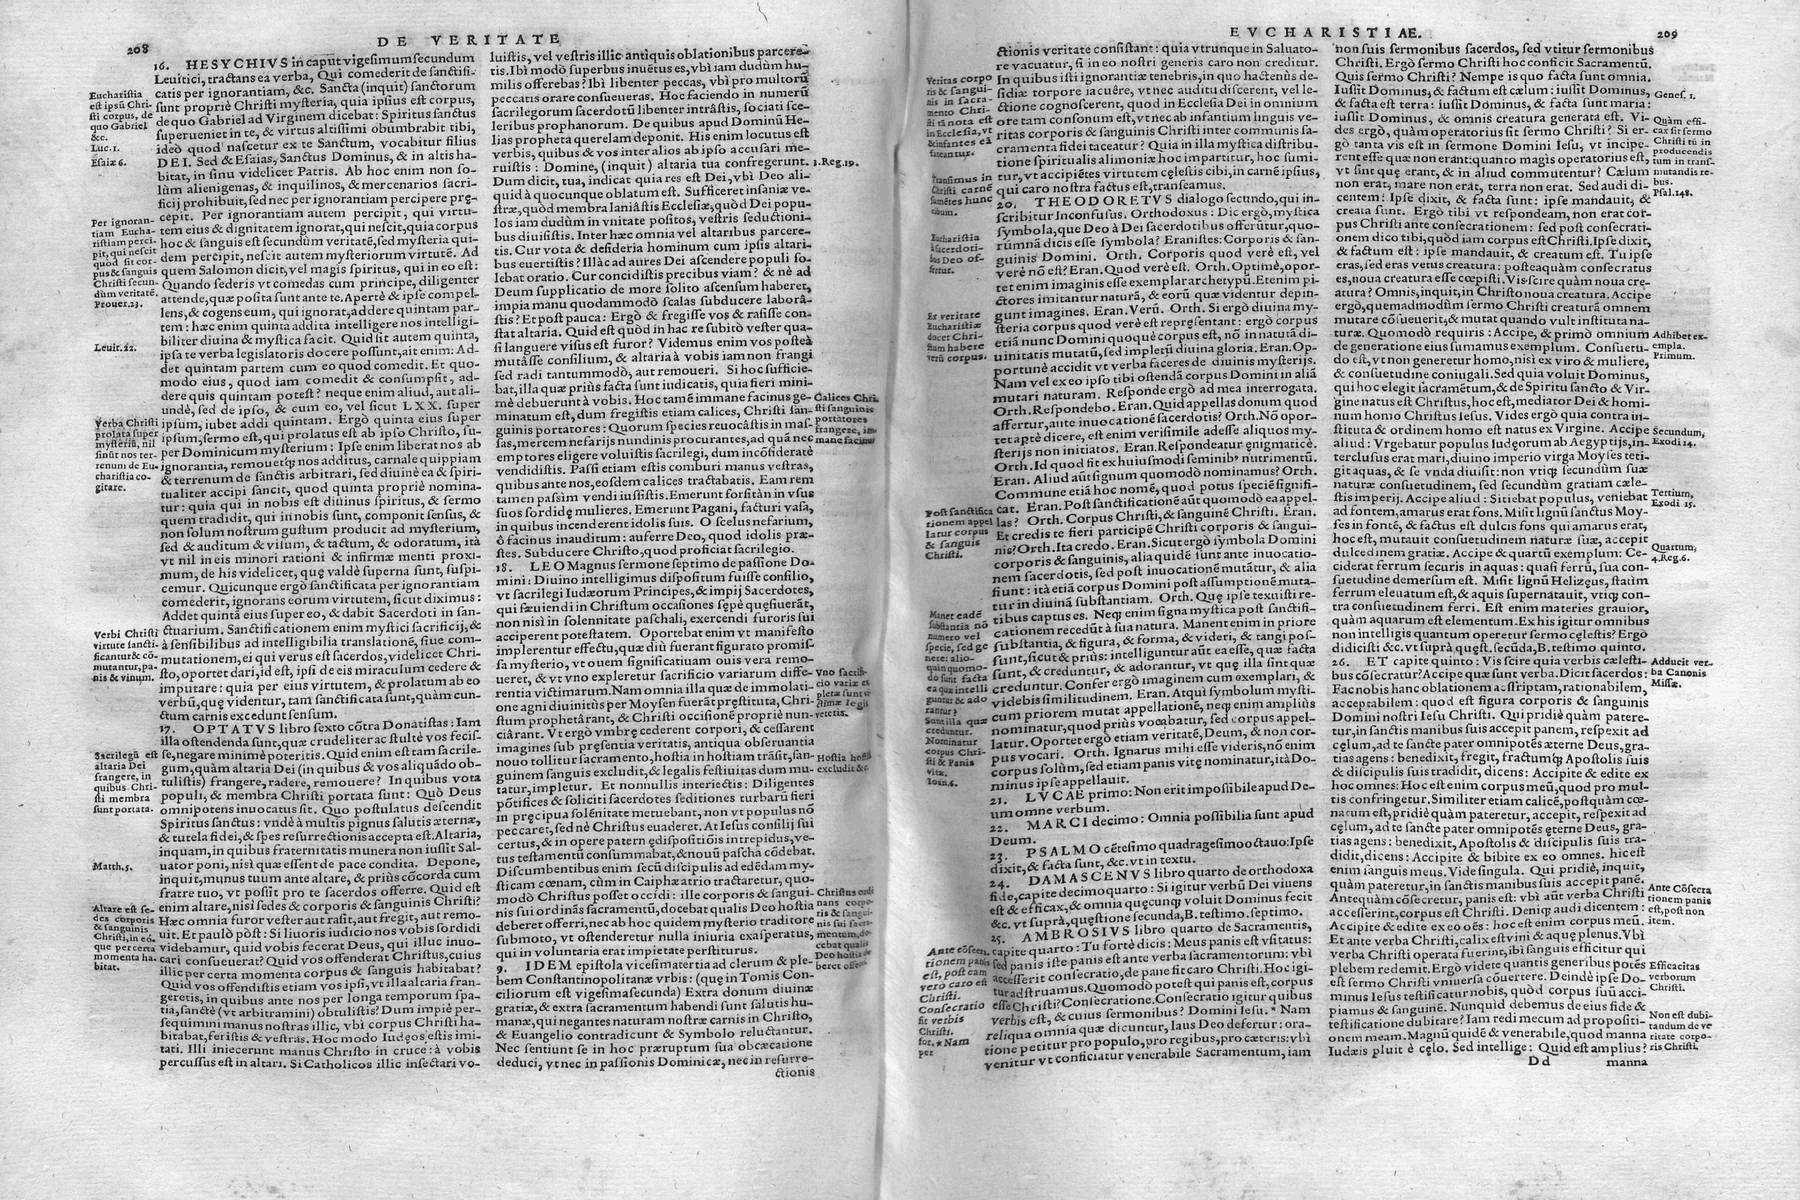 208
DE VERITATE
Eucharistia
est ipsū Chri-
sti corpus, de
quo Gabriel
&c.
Luc.1.
Esaiæ 6.
Per ignoran-
tiam Eucha-
ristiam perci-
pit, qui nescit
quod sit cor-
pus & sanguis
Christi secun-
dūm veritatē.
Prouer.23.
Leuit.22.
Verba Christi
prolata super
mysteriū, nil
sinūt nos ter-
renum de Eu-
charistia co-
gitare.
Verbi Christi
virtute sancti-
ficantur & cō-
mutantur, pa-
nis & vinum.
Sacrilegū est
altaria Dei
frangere, in
quibus Chri-
sti membra
sunt portata.
Matth.5.
Altare est se-
des corporis
& sanguinis
Christi, in eo,
que per certa
momenta ha-
bitat.
16. HESYCHIVS in caput vigesimum secundum
Leuitici, tractans ea verba, Qui comederit de sanctifi-
catis per ignorantiam, &c. Sancta (inquit) sanctorum
sunt propriè Christi mysteria, quia ipsius est corpus,
de quo Gabriel ad Virginem dicebat: Spiritus sanctus
superueniet in te, & virtus altissimi obumbrabit tibi,
ideò quod nascetur ex te Sanctum, vocabitur filius
DEI. Sed & Esaias, Sanctus Dominus, & in altis ha-
bitat, in sinu videlicet Patris. Ab hoc enim non so-
lùm alienigenas, & inquilinos, & mercenarios sacri-
ficij prohibuit, sed nec per ignorantiam percipere prę-
cepit. Per ignorantiam autem percipit, qui virtu-
tem eius & dignitatem ignorat, qui nescit, quia corpus
hoc & sanguis est secundùm veritatē, sed mysteria qui-
dem percipit, nescit autem mysteriorum virtutē. Ad
quem Salomon dicit, vel magis spiritus, qui in eo est:
Quando sederis vt comedas cum principe, diligenter
attende, quæ posita sunt ante te. Apertè & ipse compel-
lens, & cogens eum, qui ignorat, addere quintam par-
tem: hæc enim quinta addita intelligere nos intelligi-
biliter diuina & mystica facit. Quid sit autem quinta,
ipsa te verba legislatoris docere possunt, ait enim: Ad-
det quintam partem cum eo quod comedit. Et quo-
modo eius, quod iam comedit & consumpsit, ad-
dere quis quintam potest? neque enim aliud, aut ali-
undè, sed de ipso, & cum eo, vel sicut LXX. super
ipsum, iubet addi quintam. Ergò quinta eius super
ipsum, sermo est, qui prolatus est ab ipso Christo, su-
per Dominicum mysterium: Ipse enim liberat nos ab
ignorantia, remouetq; nos additus, carnale quippiam
& terrenum de sanctis arbitrari, sed diuinè ea & spiri-
tualiter accipi sancit, quod quinta propriè nomina-
tur: quia qui in nobis est diuinus spiritus, & sermo
quem tradidit, qui in nobis sunt, componit sensus, &
non solum nostrum gustum producit ad mysterium,
sed & auditum & visum, & tactum, & odoratum, ità
vt nil in eis minori rationi & infirmæ menti proxi-
mum, de his videlicet, quę valdè superna sunt, suspi-
cemur. Quicunque ergò sanctificata per ignorantiam
comederit, ignorans eorum virtutem, sicut diximus:
Addet quintā eius super eo, & dabit Sacerdoti in san-
ctuarium. Sanctificationem enim mystici sacrificij, &
à sensibilibus ad intelligibilia translationē, siue com-
mutationem, ei qui verus est sacerdos, videlicet Chri-
sto, oportet dari, id est, ipsi de eis miraculum cedere &
imputare: quia per eius virtutem, & prolatum ab eo
verbū, quę videntur, tam sanctificata sunt, quàm cun-
ctum carnis excedunt sensum.
17. OPTATVS libro sexto cōtra Donatistas: Iam
illa ostendenda sunt, quæ crudeliter ac stultè vos fecis-
se, negare minimè poteritis. Quid enim est tam sacrile-
gum, quàm altaria Dei (in quibus & vos aliquādo ob-
tulistis) frangere, radere, remouere? In quibus vota
populi, & membra Christi portata sunt: Quò Deus
omnipotens inuocatus sit. Quo postulatus descendit
Spiritus sanctus: vndè à multis pignus salutis æternæ,
& tutela fidei, & spes resurrectionis accepta est. Altaria,
inquam, in quibus fraternitatis munera non iussit Sal-
uator poni, nisi quæ essent de pace condita. Depone,
inquit, munus tuum ante altare, & priùs cōcorda cum
fratre tuo, vt possit pro te sacerdos offerre. Quid est
enim altare, nisi sedes & corporis & sanguinis Christi?
Hæc omnia furor vester aut rasit, aut fregit, aut remo-
uit. Et paulò pòst: Si liuoris iudicio nos vobis sordidi
videbamur, quid vobis fecerat Deus, qui illuc inuo-
cari consueuerat? Quid vos offenderat Christus, cuius
illic per certa momenta corpus & sanguis habitabat?
Quid vos offendistis etiam vos ipsi, vt illa altaria fran-
geretis, in quibus ante nos per longa temporum spa-
tia, sanctè (vt arbitramini) obtulistis? Dum impiè per-
sequimini manus nostras illic, vbi corpus Christi ha-
bitabat, feristis & vestras. Hoc modo Iudęos estis imi-
tati. Illi iniecerunt manus Christo in cruce: à vobis
percussus est in altari. Si Catholicos illic insectari vo-
luistis, vel vestris illic antiquis oblationibus parcere-
tis. Ibi modò superbus inuētus es, vbi iam dudùm hu-
milis offerebas? Ibi libenter peccas, vbi pro multorū
peccatis orare consueueras. Hoc faciendo in numerū
sacrilegorum sacerdotū libenter intrâstis, sociati sce-
leribus prophanorum. De quibus apud Dominū He-
lias propheta querelam deponit. His enim locutus est
verbis, quibus & vos inter alios ab ipso accusari me-
ruistis: Domine, (inquit) altaria tua confregerunt.
Dum dicit, tua, indicat quia res est Dei, vbi Deo ali-
quid à quocunque oblatum est. Sufficeret insaniæ ve-
stræ, quòd membra laniâstis Ecclesiæ, quòd Dei popu-
los iam dudùm in vnitate positos, vestris seductioni-
bus diuisistis. Inter hæc omnia vel altaribus parcere-
tis. Cur vota & desideria hominum cum ipsis altari-
bus euertistis? Illàc ad aures Dei ascendere populi so-
lebat oratio. Cur concidistis precibus viam? & nè ad
Deum supplicatio de more solito ascensum haberet,
impia manu quodammodò scalas subducere laborâ-
stis? Et post pauca: Ergò & fregisse vos & rasisse con-
stat altaria. Quid est quòd in hac re subitò vester qua-
si languere visus est furor? Videmus enim vos posteà
mutâsse consilium, & altaria à vobis iam non frangi
sed radi tantummodò, aut remoueri. Si hoc sufficie-
bat, illa quæ priùs facta sunt iudicatis, quia fieri mini-
mè debuerunt à vobis. Hoc tamē immane facinus ge-
minatum est, dum fregistis etiam calices, Christi san-
guinis portatores: Quorum species reuocâstis in mas-
sas, mercem nefarijs nundinis procurantes, ad quā nec
emptores eligere voluistis sacrilegi, dum incōsideratè
vendidistis. Passi etiam estis comburi manus vestras,
quibus ante nos, eosdem calices tractabatis. Eam rem
tamen passim vendi iussistis. Emerunt forsitàn in vsus
suos sordidę mulieres. Emerunt Pagani, facturi vasa,
in quibus incenderent idolis suis. O scelus nefarium,
ô facinus inauditum: auferre Deo, quod idolis præ-
stes. Subducere Christo, quod proficiat sacrilegio.
18. LEO Magnus sermone septimo de passione Do-
mini: Diuino intelligimus dispositum fuisse consilio,
vt sacrilegi Iudæorum Principes, & impij Sacerdotes,
qui sæuiendi in Christum occasiones sępè quęsiuerāt,
non nisi in solennitate paschali, exercendi furoris sui
acciperent potestatem. Oportebat enim vt manifesto
implerentur effectu, quæ diù fuerant figurato promis-
sa mysterio, vt ouem significatiuam ouis vera remo-
ueret, & vt vno expleretur sacrificio variarum diffe-
rentia victimarum. Nam omnia illa quæ de immolati-
one agni diuinitùs per Moysen fuerāt pręstituta, Chri-
stum prophetârant, & Christi occisionē propriè nun-
ciârant. Vt ergò vmbrę cederent corpori, & cessarent
imagines sub pręsentia veritatis, antiqua obseruantia
nouo tollitur sacramento, hostia in hostiam trāsit, san-
guinem sanguis excludit, & legalis festiuitas dum mu-
tatur, impletur. Et nonnullis interiectis: Diligentes
pōtifices & soliciti sacerdotes seditiones turbarū fieri
in pręcipua solēnitate metuebant, non vt populus nō
peccaret, sed nè Christus euaderet. At Iesus consilij sui
certus, & in opere paternę dispositionis intrepidus, ve-
tus testamentū consummabat, & nouū pascha cōdebat.
Discumbentibus enim secū discipulis ad edēdam my-
sticam cœnam, cùm in Caiphæ atrio tractaretur, quo-
modò Christus posset occidi: ille corporis & sangui-
nis sui ordinās sacramentū, docebat qualis Deo hostia
deberet offerri, nec ab hoc quidem mysterio traditore
submoto, vt ostenderetur nulla iniuria exasperatus,
qui in voluntaria erat impietate perstiturus.
9. IDEM epistola vicesimatertia ad clerum & ple-
bem Constantinopolitanæ vrbis: (quę in Tomis Con-
ciliorum est vigesimasecunda) Extra donum diuinæ
gratiæ, & extra sacramentum habendi sunt salutis hu-
manæ, qui negantes naturam nostræ carnis in Christo,
& Euangelio contradicunt & Symbolo reluctantur.
Nec sentiunt se in hoc præruptum sua obcæcatione
deduci, vt nec in passionis Dominicæ, nec in resurre-
ctionis
1.Reg.19.
Calices Chri
sti sanguinis
portatores
frangere, im
mane facinus
Vno sacrifi-
cio variæ ex
pletæ sunt vi
ctimæ legis
veteris.
Hostia hostiā
excludit &c.
Christus ordi
nans corpo-
ris & sangui-
nis sui sacra-
mentum, do-
cebat qualis
Deo hostia de
beret offerri.
EVCHARISTIAE.
209
Veritas corpo
ris & sangui-
nis in sacra-
mento Chri-
sti tā nota est
in Ecclesia, vt
& infantes eā
fateantur.
Transimus in
Christi carnē
sumētes hunc
cibum.
Eucharistia
à sacerdoti-
bus Deo of-
fertur.
Ex veritate
Eucharistiæ
docet Chri-
stum habere
verū corpus.
Post sanctifica
tionem appel
latur corpus
& sanguis
Christi.
Manet eadē
substantia nō
numero vel
specie, sed ge
nere: alio-
quin quomo-
do sunt facta
ea quæ intelli
guntur & ado
rantur?
Sunt illa quæ
creduntur.
Nominatur
corpus Chri-
sti & Panis
vitæ.
Ioan.6.
Ante cōsecra
tionem panis
est, post eam
vero caro est
Christi.
Consecratio
fit verbis
Christi.
for. * Nam
per
ctionis veritate consistant: quia vtrunque in Saluato-
re vacuatur, si in eo nostri generis caro non creditur.
In quibus isti ignorantiæ tenebris, in quo hactenùs de-
sidiæ torpore iacuêre, vt nec auditu discerent, vel le-
ctione cognoscerent, quod in Ecclesia Dei in omnium
ore tam consonum est, vt nec ab infantium linguis ve-
ritas corporis & sanguinis Christi inter communis sa-
cramenta fidei taceatur? Quia in illa mystica distribu-
tione spiritualis alimoniæ hoc impartitur, hoc sumi-
tur, vt accipiētes virtutem cęlestis cibi, in carnē ipsius,
qui caro nostra factus est, transeamus.
20. THEODORETVS dialogo secundo, qui in-
scribitur Inconfusus. Orthodoxus: Dic ergò, mystica
symbola, que Deo à Dei sacerdotibus offerūtur, quo-
rumnā dicis esse symbola? Eranistes: Corporis & san-
guinis Domini. Orth. Corporis quod verè est, vel
verè nō est? Eran. Quod verè est. Orth. Optimè, opor-
tet enim imaginis esse exemplar archetypū. Etenim pi-
ctores imitantur naturā, & eorū quæ videntur depin-
gunt imagines. Eran. Verū. Orth. Si ergò diuina my-
steria corpus quod verè est repręsentant: ergò corpus
etiā nunc Domini quoquè corpus est, nō in naturā di-
uinitatis mutatū, sed impletū diuina gloria. Eran. Op-
portunè accidit vt verba faceres de diuinis mysterijs.
Nam vel ex eo ipso tibi ostendā corpus Domini in aliā
mutari naturam. Responde ergò ad mea interrogata.
Orth. Respondebo. Eran. Quid appellas donum quod
affertur, ante inuocationē sacerdotis? Orth. Nō opor-
tet aptè dicere, est enim verisimile adesse aliquos my-
sterijs non initiatos. Eran. Respondeatur enigmaticè.
Orth. Id quod fit ex huiusmodi seminib⁹ nutrimentū.
Eran. Aliud aūt signum quomodò nominamus? Orth.
Commune etiā hoc nomē, quod potus speciē signifi-
cat. Eran. Post sanctificationē aūt quomodò ea appel-
las? Orth. Corpus Christi, & sanguinē Christi. Eran.
Et credis te fieri participē Christi corporis & sangui-
nis? Orth. Ita credo. Eran. Sicut ergò symbola Domini
corporis & sanguinis, alia quidē sunt ante inuocatio-
nem sacerdotis, sed post inuocationē mutātur, & alia
fiunt: ità etiā corpus Domini post assumptionē muta-
tur in diuinā substantiam. Orth. Quę ipse texuisti re-
tibus captus es. Neq; enim signa mystica post sanctifi-
cationem recedūt à sua natura. Manent enim in priore
substantia, & figura, & forma, & videri, & tangi pos-
sunt, sicut & priùs: intelliguntur aūt ea esse, quæ facta
sunt, & creduntur, & adorantur, vt quę illa sint quæ
creduntur. Confer ergò imaginem cum exemplari, &
videbis similitudinem. Eran. Atqui symbolum mysti-
cum priorem mutat appellationē, neq; enim ampliùs
nominatur, quod priùs vocabatur, sed corpus appel-
latur. Oportet ergò etiam veritatē, Deum, & non cor-
pus vocari. Orth. Ignarus mihi esse videris, nō enim
corpus solùm, sed etiam panis vitę nominatur, ità Do-
minus ipse appellauit.
21. LVCAE primo: Non erit impossibile apud De-
um omne verbum.
22. MARCI decimo: Omnia possibilia sunt apud
Deum.
23. PSALMO cētesimo quadragesimo octauo: Ipse
dixit, & facta sunt, &c. vt in textu.
24. DAMASCENVS libro quarto de orthodoxa
fide, capite decimoquarto: Si igitur verbū Dei viuens
est & efficax, & omnia quęcunq; voluit Dominus fecit
&c. vt suprà, quęstione secunda, B. testimo. septimo.
25. AMBROSIVS libro quarto de Sacramentis,
capite quarto: Tu fortè dicis: Meus panis est vsitatus:
sed panis iste panis est ante verba sacramentorum: vbi
accesserit consecratio, de pane fit caro Christi. Hoc igi-
tur adstruamus. Quomodò potest qui panis est, corpus
esse Christi? Consecratione. Consecratio igitur quibus
verbis est, & cuius sermonibus? Domini Iesu. * Nam
reliqua omnia quæ dicuntur, laus Deo defertur: ora-
tione petitur pro populo, pro regibus, pro cæteris: vbi
venitur vt conficiatur venerabile Sacramentum, iam
non suis sermonibus sacerdos, sed vtitur sermonibus
Christi. Ergò sermo Christi hoc conficit Sacramentū.
Quis sermo Christi? Nempe is quo facta sunt omnia.
Iussit Dominus, & factum est cælum: iussit Dominus,
& facta est terra: iussit Dominus, & facta sunt maria:
iussit Dominus, & omnis creatura generata est. Vi-
des ergò, quàm operatorius sit sermo Christi? Si er-
gò tanta vis est in sermone Domini Iesu, vt incipe-
rent esse quæ non erant: quanto magis operatorius est,
vt sint quę erant, & in aliud commutentur? Cælum
non erat, mare non erat, terra non erat. Sed audi di-
centem: Ipse dixit, & facta sunt: ipse mandauit, &
creata sunt. Ergò tibi vt respondeam, non erat cor-
pus Christi ante consecrationem: sed post consecrati-
onem dico tibi, quòd iam corpus est Christi. Ipse dixit,
& factum est: ipse mandauit, & creatum est. Tu ipse
eras, sed eras vetus creatura: posteaquàm consecratus
es, noua creatura esse cœpisti. Vis scire quàm noua cre-
atura? Omnis, inquit, in Christo noua creatura. Accipe
ergò, quemadmodùm sermo Christi creaturā omnem
mutare cōsueuerit, & mutat quando vult instituta na-
turæ. Quomodò requiris: Accipe, & primò omnium
de generatione eius sumamus exemplum. Consuetu-
do est, vt non generetur homo, nisi ex viro & muliere,
& consuetudine coniugali. Sed quia voluit Dominus,
qui hoc elegit sacramētum, & de Spiritu sancto & Vir-
gine natus est Christus, hoc est, mediator Dei & homi-
num homo Christus Iesus. Vides ergò quia contra in-
stituta & ordinem homo est natus ex Virgine. Accipe
aliud: Vrgebatur populus Iudęorum ab Aegyptijs, in-
terclusus erat mari, diuino imperio virga Moyses teti-
git aquas, & se vnda diuisit: non vtiq; secundùm suæ
naturæ consuetudinem, sed secundùm gratiam cæle-
stis imperij. Accipe aliud: Sitiebat populus, veniebat
ad fontem, amarus erat fons. Misit lignū sanctus Moy-
ses in fontē, & factus est dulcis fons qui amarus erat,
hoc est, mutauit consuetudinem naturæ suæ, accepit
dulcedinem gratiæ. Accipe & quartū exemplum: Ce-
ciderat ferrum securis in aquas: quasi ferrū, sua con-
suetudine demersum est. Misit lignū Helizeus, statim
ferrum eleuatum est, & aquis supernatauit, vtiq; con-
tra consuetudinem ferri. Est enim materies grauior,
quàm aquarum est elementum. Ex his igitur omnibus
non intelligis quantum operetur sermo cęlestis? Ergò
didicisti &c. vt suprà quęst. secūda, B. testimo. quinto.
26. ET capite quinto: Vis scire quia verbis cælesti-
bus cōsecratur? Accipe quæ sunt verba. Dicit sacerdos:
Fac nobis hanc oblationem ascriptam, rationabilem,
acceptabilem: quod est figura corporis & sanguinis
Domini nostri Iesu Christi. Qui pridiè quàm patere-
tur, in sanctis manibus suis accepit panem, respexit ad
cęlum, ad te sancte pater omnipotēs æterne Deus, gra-
tias agens: benedixit, fregit, fractumq; Apostolis suis
& discipulis suis tradidit, dicens: Accipite & edite ex
hoc omnes: Hoc est enim corpus meū, quod pro mul-
tis confringetur. Similiter etiam calicē, postquàm cœ-
natum est, pridiè quàm pateretur, accepit, respexit ad
cęlum, ad te sancte pater omnipotēs ęterne Deus, gra-
tias agens: benedixit, Apostolis & discipulis suis tra-
didit, dicens: Accipite & bibite ex eo omnes. hic est
enim sanguis meus. Vide singula. Qui pridiè, inquit,
quàm pateretur, in sanctis manibus suis accepit panē.
Antequàm cōsecretur, panis est: vbi aūt verba Christi
accesserint, corpus est Christi. Deniq; audi dicentem:
Accipite & edite ex eo oēs: hoc est enim corpus meū.
Et ante verba Christi, calix est vini & aquę plenus. Vbi
verba Christi operata fuerint, ibi sanguis efficitur qui
plebem redemit. Ergò videte quantis generibus potēs
est sermo Christi vniuersa cōuertere. Deindè ipse Do-
minus Iesus testificatur nobis, quòd corpus suū acci-
piamus & sanguinē. Nunquid debemus de eius fide &
testificatione dubitare? Iam redi mecum ad propositi-
onem meam. Magnū quidē & venerabile, quod manna
Iudæis pluit è cęlo. Sed intellige: Quid est amplius?
Dd manna
Genes. 1.
Quàm effi-
cax sit sermo
Christi tū in
producendis
tum in trans-
mutandis re-
bus.
Psal.148.
Adhibet ex-
empla.
Primum.
Secundum,
Exodi 14.
Tertium,
Exodi 15.
Quartum,
4.Reg.6.
Adducit ver-
ba Canonis
Missæ.
Ante Cōsecra
tionem panis
est, post non
item.
Efficacitas
verborum
Christi.
Non est dubi-
tandum de ve
ritate corpo-
ris Christi.